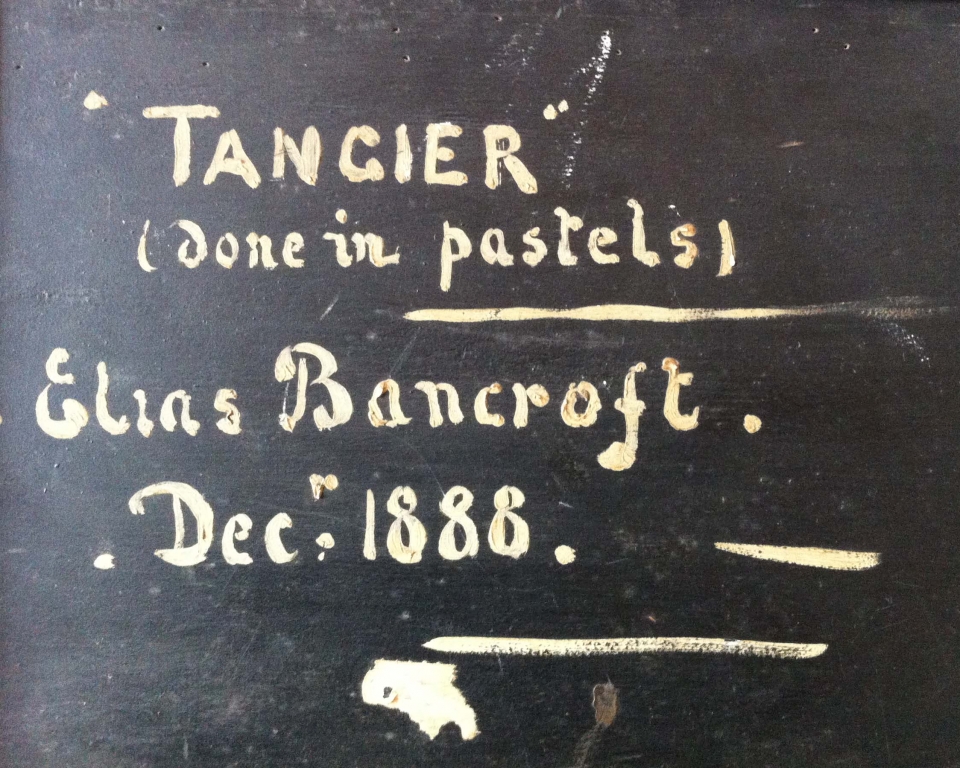 "TANGIER"
(done in pastels)
Elias Bancroft.
. Dec.r 1888.